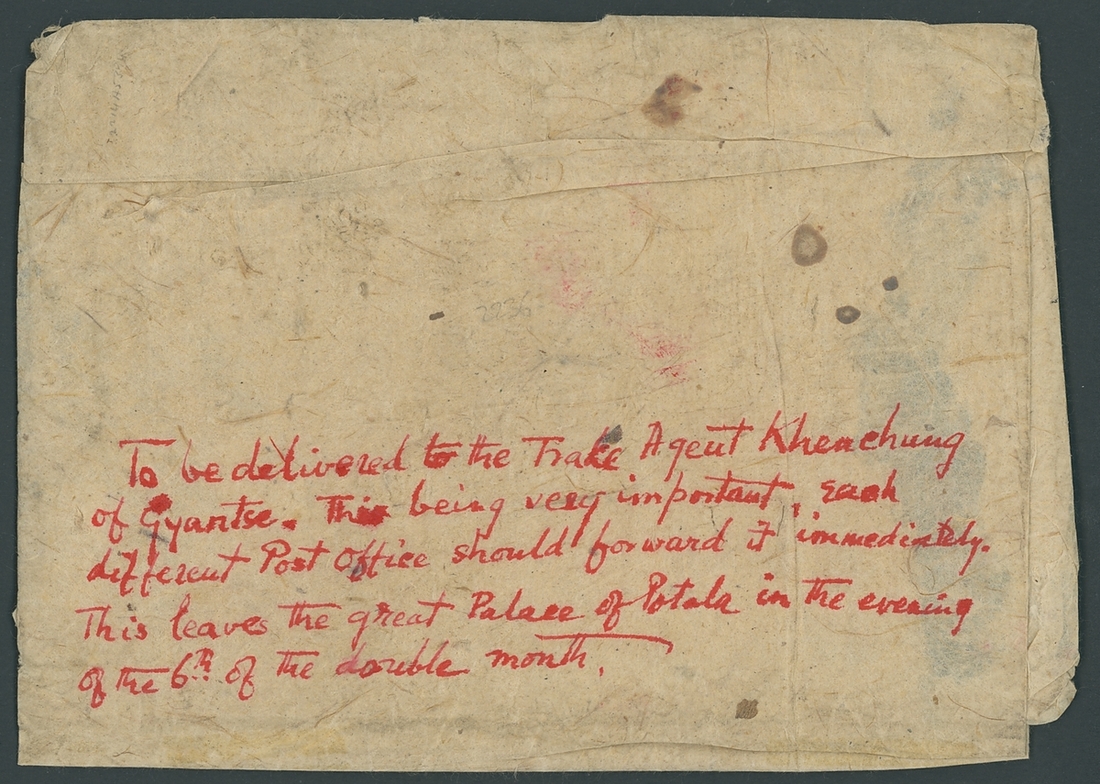 2236
To be delivered to the Trade Agent Khenchung
of Gyantse. This being very important, each
different Post Office should forward it immediately.
This leaves the great Palace of Potala in the evening
of the 6th of the double month.